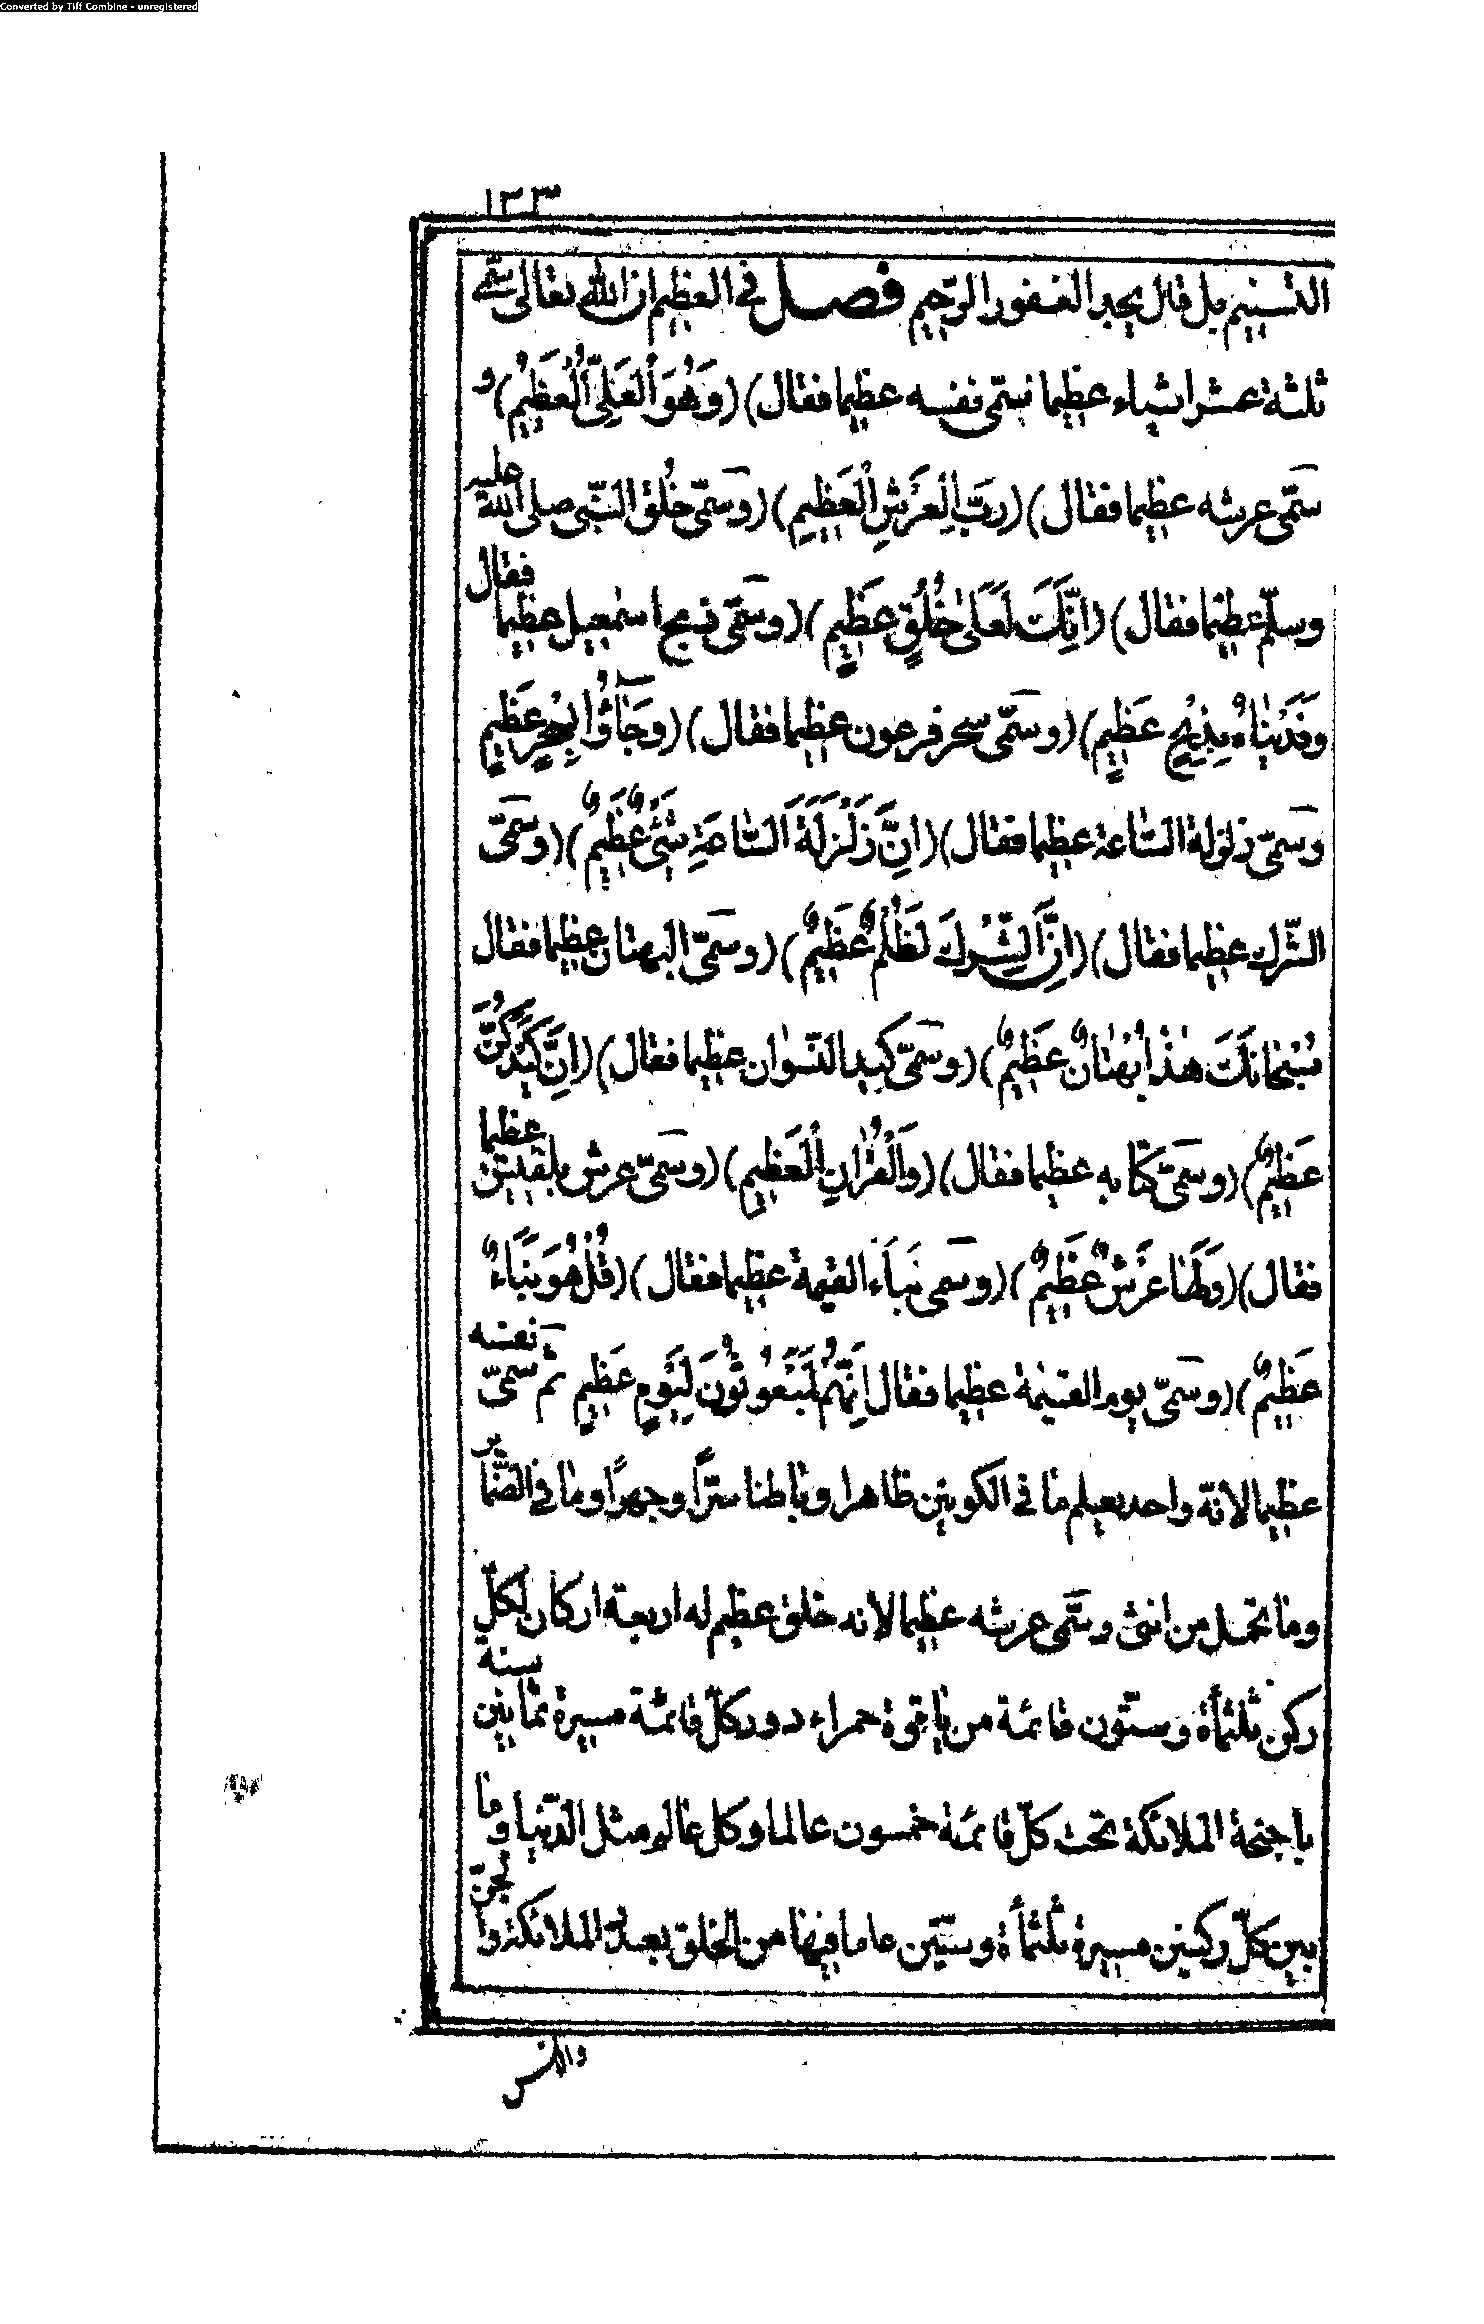 Converted by Tiff Combine - unregistered
١٣٣
التسنيم بل قال يجد الغفور الرّحيم فصل في العظيم ان الله تعالى سمّى
ثلثة عشر اشياء عظيما فسمّى نفسه عظيما فقال) (وَهُوَ اَلْعَلِىُّ اَلْعَظِيمُ) و
سمّى عرشه عظيما فقال) (رَبِّ الْعَرْشِ الْعَظِيمِ) (وسمّى خلق النّبى صلى الله عليه
وسلّم عظيما فقال) (اِنَّكَ لَعَلىٰ خُلُقٍ عَظِيمٍ) (وسمّى ذبح اسمعيل عظيما فقال
وفَدَيْنَاهُ بِذِبْحٍ عَظِيمٍ) (وسمّى سحر فرعون عظيما فقال) (وجَآؤُا بِسِحْرٍ عَظِيمٍ
وسمّى زلزلة السّاعة عظيما فقال) (اِنَّ زَلْزَلَةَ السَّاعَةِ شَىْءٌ عَظِيمٌ) (وسمّى
الشّرك عظيما فقال) (اِنَّ الشِّرْكَ لَظُلْمٌ عَظِيمٌ) (وسمّى البهتان عظيما فقال
سُبْحَانَكَ هٰذَا بُهْتَانٌ عَظِيمٌ) (وسمّى كيد النّسوان عظيما فقال) (اِنَّ كَيْدَكُنَّ
عَظِيمٌ) (وسمّى كتابه عظيما فقال) (وَالْقُرْاٰنِ الْعَظِيمِ) (وسمّى عرش بلقيس عظيما
فقال) (وَلَهَا عَرْشٌ عَظِيمٌ) (وسمى نَبَأَ القيمة عظيما فقال) (قُلْ هُوَ نَبَاءٌ
عَظِيمٌ) (وسمّى يوم القيمة عظيما فقال اِنَّهُمْ لَمَبْعُوثُونَ لِيَوْمٍ عَظِيمٍ ثم سمّى نفسه
عظيما لانّه واحد يعلم ما في الكونين ظاهرا وباطنا سرّاً وجهراً وما في الضّماير
وما تحمل من انثى وسمّى عرشه عظيما لانه خلق عظيم له اربعة اركان لكلّ
ركن ثلثمأة وستّون قائمة من ياقوة حمراء دور كلّ قائمة مسيرة ثمانين سنة
باجنحة الملائكة تحت كلّ قائمة خمسون عالما وكل عالم مثل الدّنيا وما
بين كلّ ركنين مسيرة ثلثمأة وستّين عاما فيها من الخلق بعدد الملائكة والجنّ
والانس